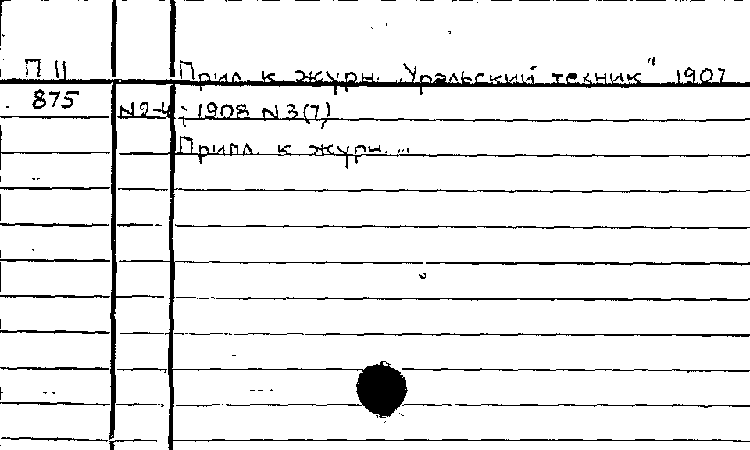 П II
875
Прил. к журн. „Уральский техник" 1907
N2-4; 1908 N3(7)
Прил. к журн. „